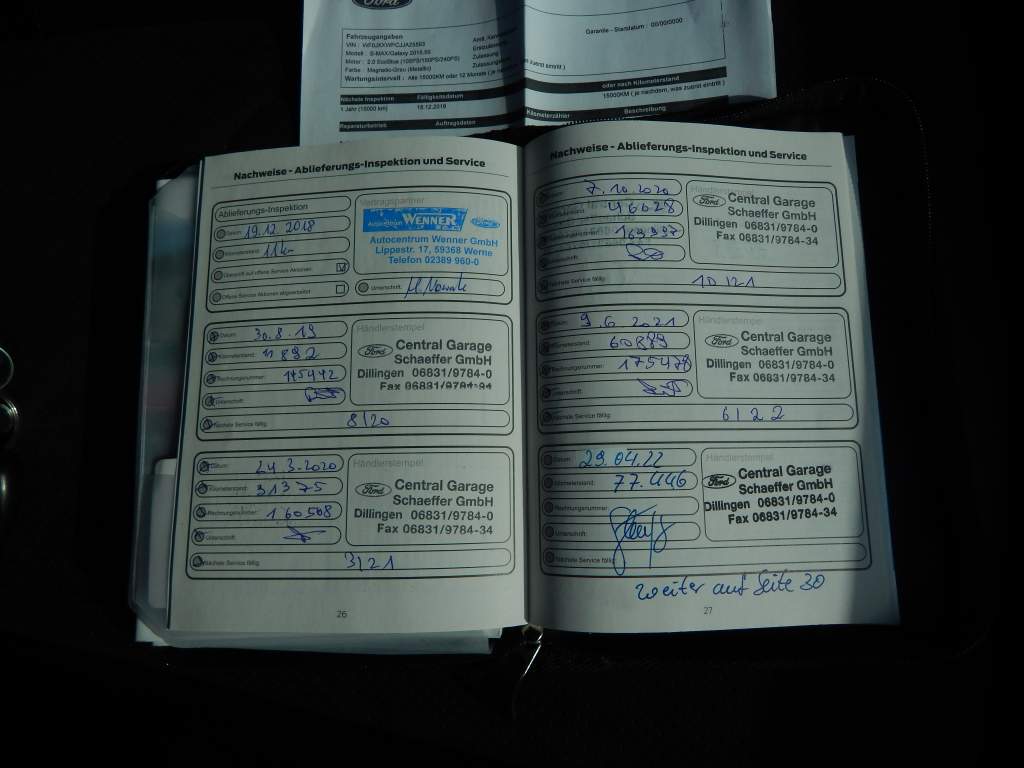 Ford
Fahrzeugangaben
Modell : S-MAX/Galaxy 2015.50
Motor : 2.0 EcoBlue (150PS/190PS/240PS)
Farbe : Magnetic-Grau (Metallic)
Wartungsintervall : Alle 15000KM oder 12 Monate ( je nachdem, was zuerst eintritt )
Garantie - Startdatum : 00/00/0000
oder nach Kilometerstand
15000KM ( je nachdem, was zuerst eintritt )
Nächste Inspektion Fälligkeitsdatum
1 Jahr (15000 km) 18.12.2019
Kilometerzähler Beschreibung
Reparaturbetrieb Auftragsdaten
Nachweise - Ablieferungs-Inspektion und Service
Ablieferungs-Inspektion
Datum: 19.12 2018
Kilometerstand: 11 km
Überprüft auf offene Service Aktionen
Offene Service Aktionen abgearbeitet
Vertragspartner
Autocentrum WENNER Ford
Autocentrum Wenner GmbH
Lippestr. 17, 59368 Werne
Telefon 02389 960-0
Unterschrift:
Datum: 30.8.19
Kilometerstand: 11 892
Rechnungsnummer: 145472
Unterschrift:
Nächste Service fällig: 8/20
Händlerstempel
Ford Central Garage
Schaeffer GmbH
Dillingen 06831/9784-0
Fax 06831/9784-34
Datum: 24.3.2020
Kilometerstand: 31375
Rechnungsnummer: 160508
Unterschrift:
Nächste Service fällig: 3/21
Händlerstempel
Ford Central Garage
Schaeffer GmbH
Dillingen 06831/9784-0
Fax 06831/9784-34
26
Nachweise - Ablieferungs-Inspektion und Service
7.10.2020
46028
163997
Nächste Service fällig: 10/21
Händlerstempel
Ford Central Garage
Schaeffer GmbH
Dillingen 06831/9784-0
Fax 06831/9784-34
Datum: 9.6.2021
Kilometerstand: 60889
Rechnungsnummer: 175478
Unterschrift:
Nächste Service fällig: 6/22
Händlerstempel
Ford Central Garage
Schaeffer GmbH
Dillingen 06831/9784-0
Fax 06831/9784-34
Datum: 29.04.22
Kilometerstand: 77.446
Rechnungsnummer:
Unterschrift:
Nächste Service fällig:
Händlerstempel
Ford Central Garage
Schaeffer GmbH
Dillingen 06831/9784-0
Fax 06831/9784-34
weiter auf Seite 30
27